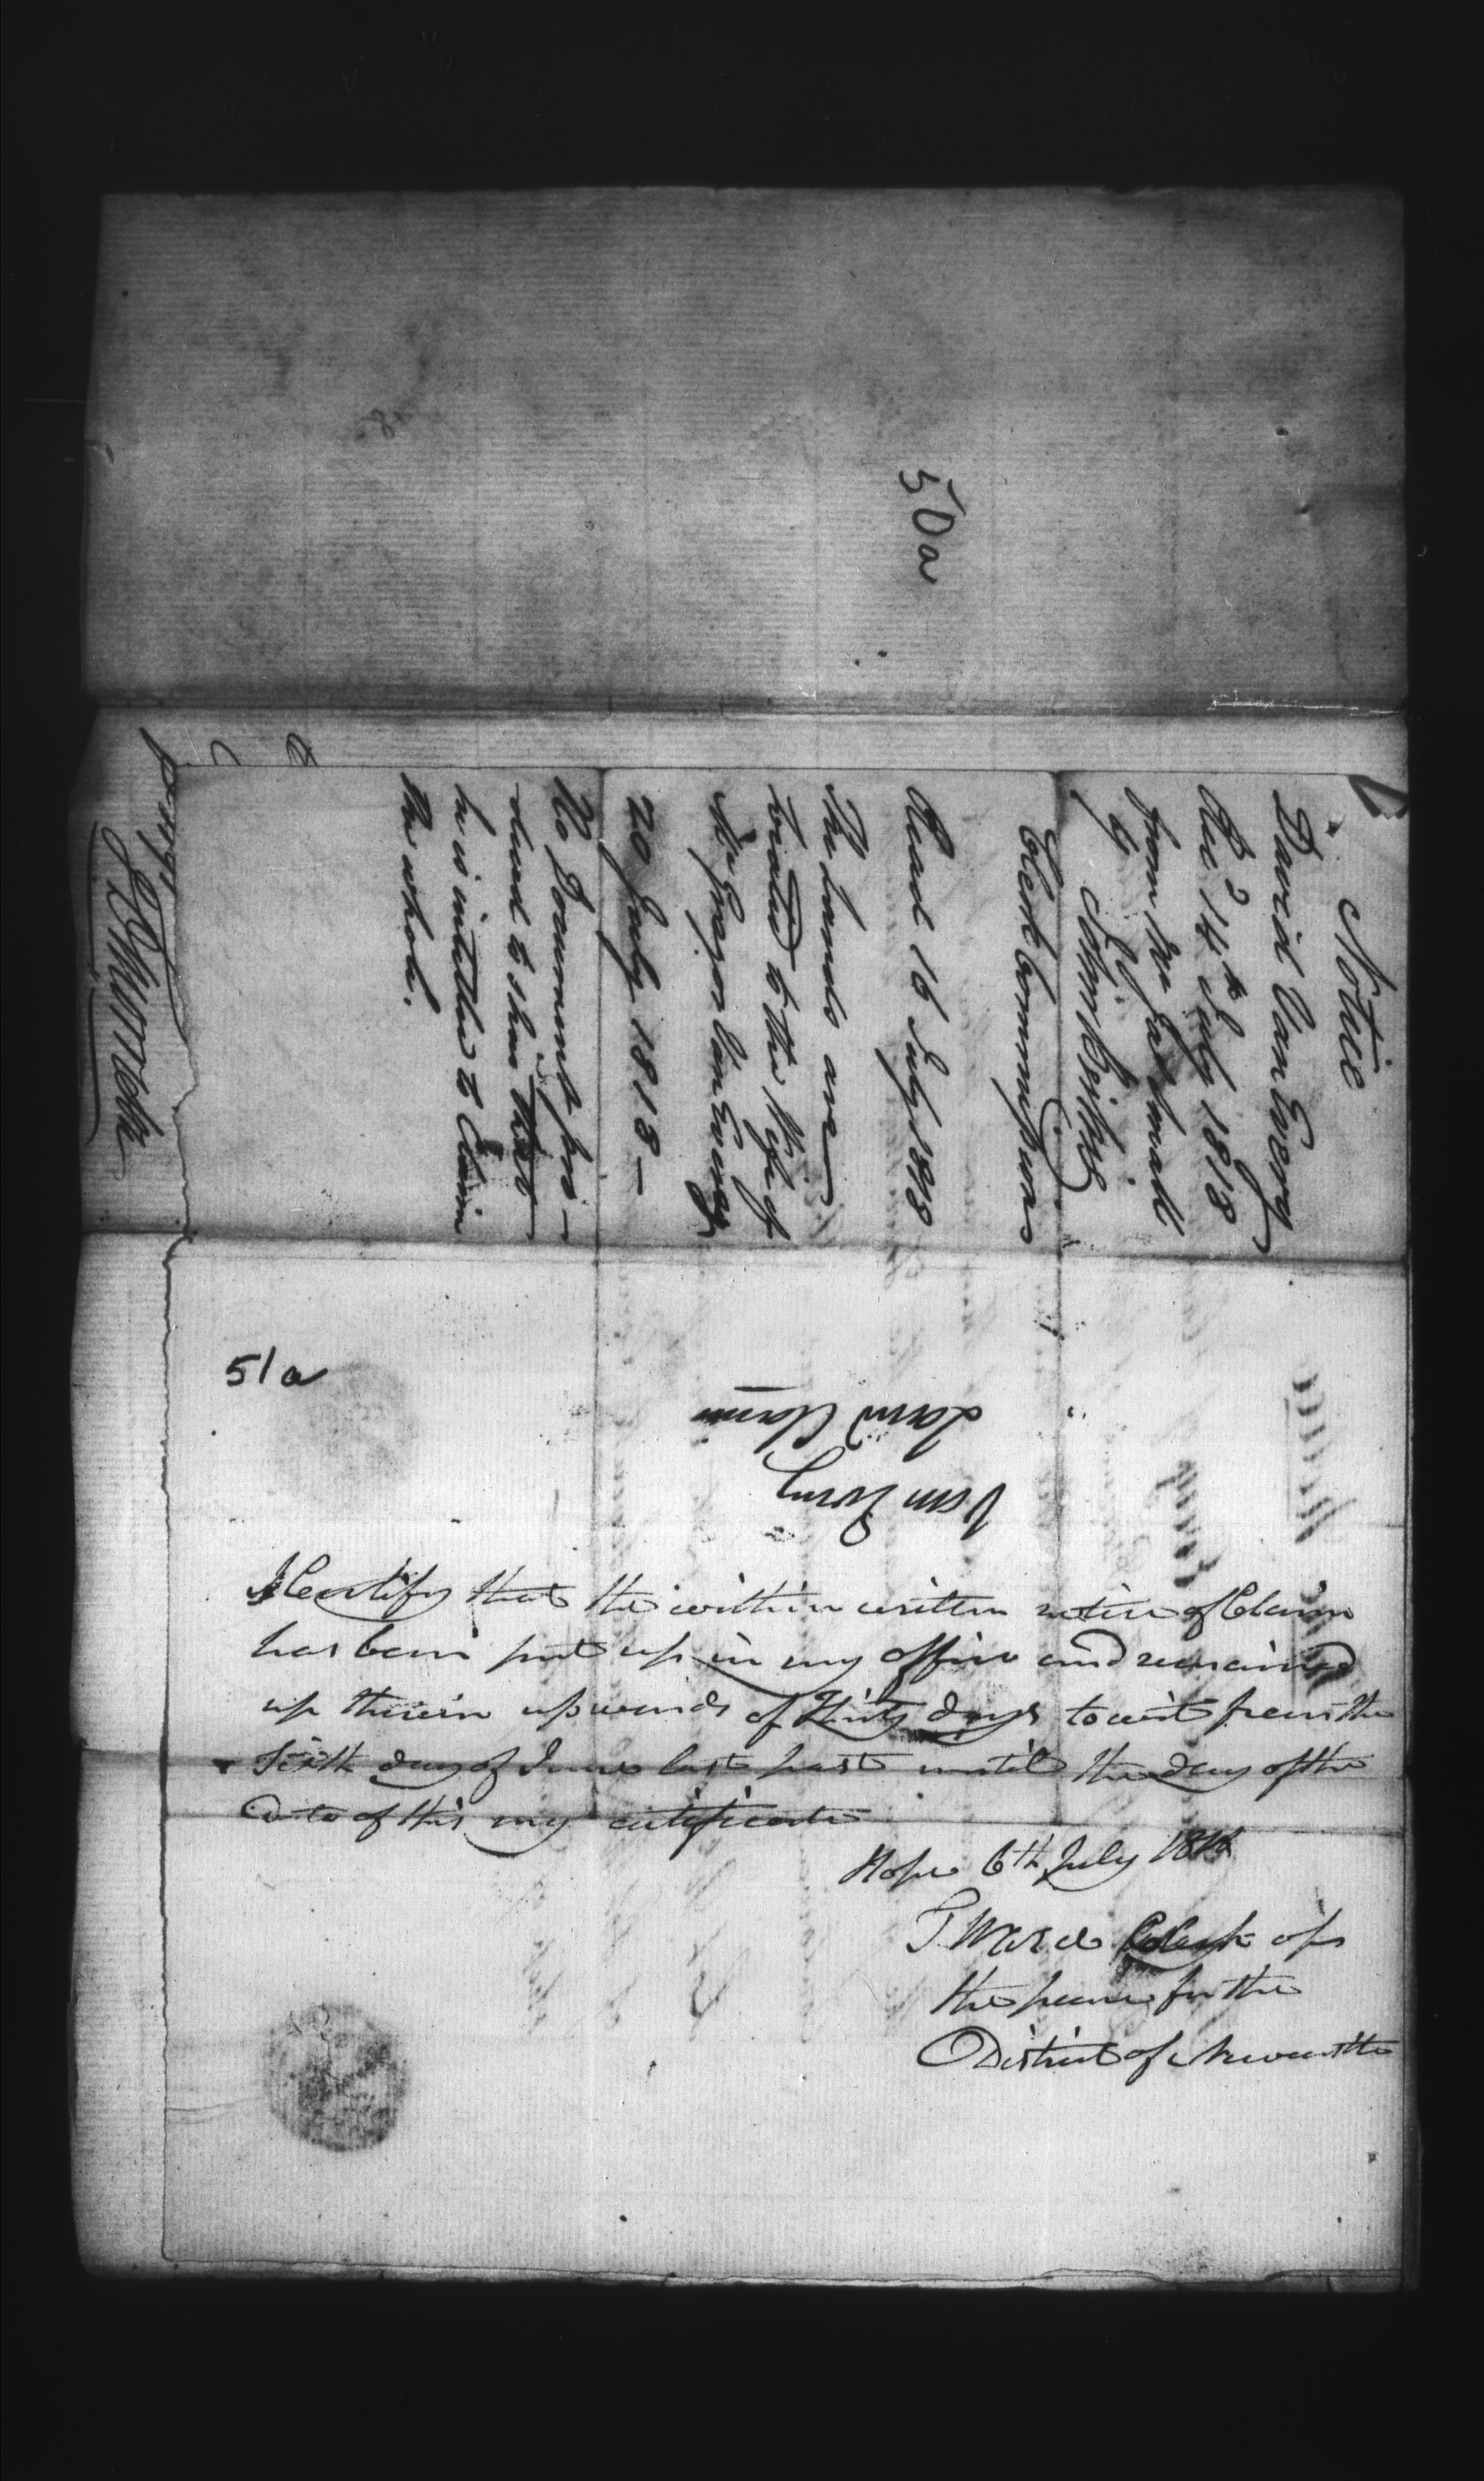 50a
Notice
David Van Every
Rec^d 14th July 1818
from
by
John Beikie
Clerk Commissioners
Read 16 July 1818
The Lands are
located to the Wife of
McGregor Van Every
20 July 1818 —
No Document pro-
duced to shew that
he is intitled to Claim
the whole.
51a
Van Every
Land Claim
I Certify that the within written notice of Claim
has been put up in my office and remained
up therein upwards of Thirty days to wit from the
Sixth day of June last past until the day of the
date of this my certificate
Hope 6th July 1818
T Ward Clerk of
the peace for the
District of Newcastle